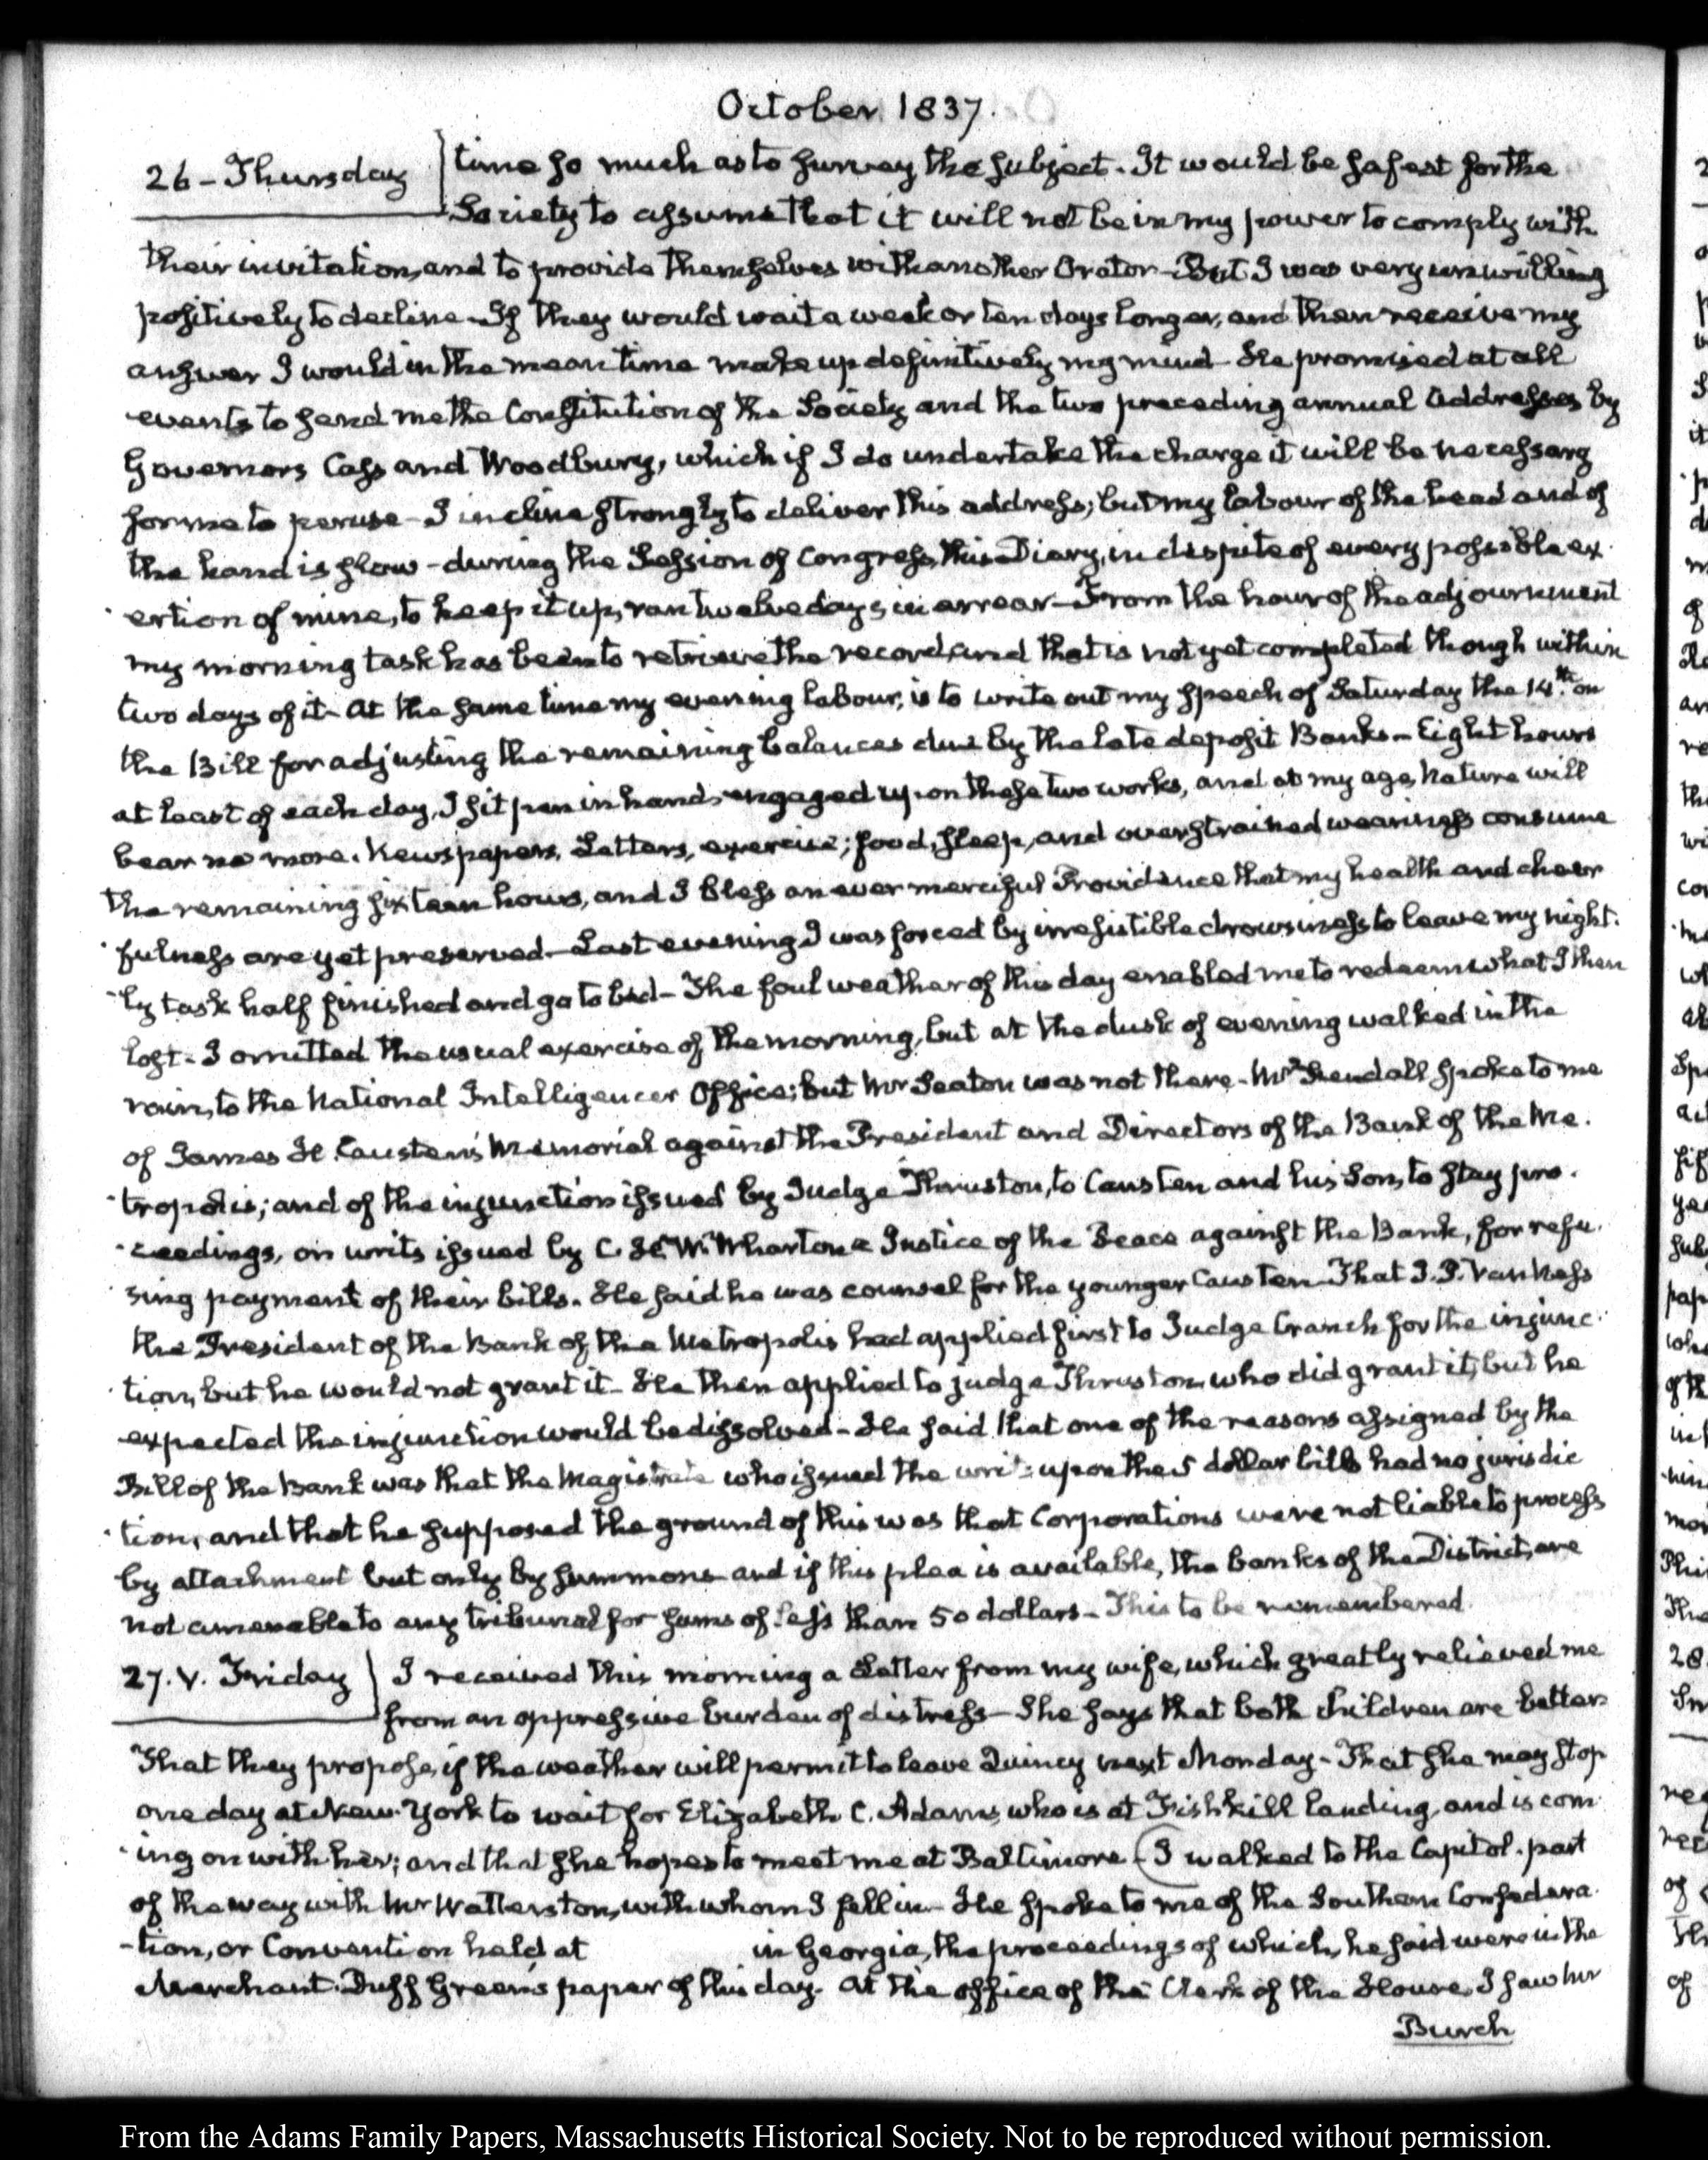 October 1837.
26 – Thursday
time so much as to survey the subject. It would be safest for the
Society to assume that it will not be in my power to comply with
their invitation, and to provide themselves with another Orator – But I was very unwilling
positively to decline – If they would wait a week or ten days longer, and then receive my
answer I would in the mean time make up definitively my mind – He promised at all
events to send me the Constitution of the Society and the two preceding annual Addresses by
Governors Cass and Woodbury, which if I do undertake the charge it will be necessary
for me to peruse – I incline strongly to deliver this address; but my labour of the head and of
the hand is slow – during the Session of Congress, this Diary, in despite of every possible ex-
-ertion of mine, to keep it up, ran twelve days in arrear – From the hour of the adjournment
my morning task has been to retrieve the record, and that is not yet completed though within
two days of it – At the same time my evening labour, is to write out my speech of Saturday the 14th. on
the Bill for adjusting the remaining balances due by the late deposit Banks – Eight hours
at least of each day, I sit pen in hand engaged upon these two works, and at my age, Nature will
bear no more. Newspapers, Letters, exercise; food, sleep, and overstrained weariness consume
the remaining sixteen hours, and I bless an ever merciful Providence that my health and cheer
-fulness are yet preserved – Last evening I was forced by irresistible drowsiness to leave my night-
-ly task half finished and go to bed – The foul weather of this day enabled me to redeem what I then
lost – I omitted the usual exercise of the morning, but at the dusk of evening walked in the
rain, to the National Intelligencer Office; but Mr Seaton was not there – Mr Kendall spoke to me
of James H. Causten's Memorial against the President and Directors of the Bank of the Me-
-tropolis; and of the injunction issued by Judge Thruston, to Causten and his Son, to stay pro-
-ceedings, on writs issued by C. H. W. Wharton a Justice of the Peace against the Bank, for refu-
-sing payment of their bills. He said he was counsel for the younger Causten – That J. P. Van Ness
the President of the Bank of the Metropolis had applied first to Judge Cranch for the injunc-
-tion, but he would not grant it – He then applied to judge Thruston who did grant it, but he
expected the injunction would be dissolved – He said that one of the reasons assigned by the
Bill of the Bank was that the Magistrate who issued the writs upon the 5 dollar bills had no jurisdic
-tion, and that he supposed the ground of this was that Corporations were not liable to process
by attachment but only by summons and if this plea is available, the banks of the District, are
not amenable to any tribunal for sums of less than 50 dollars – This to be remembered.
27. V. Friday
I received this morning a Letter from my wife, which greatly relieved me
from an oppressive burden of distress – She says that both children are better
That they propose, if the weather will permit to leave Quincy next Monday – That she may stop
one day at New-York to wait for Elizabeth C. Adams, who is at Fishkill landing, and is com-
-ing on with her; and that she hopes to meet me at Baltimore – (I walked to the Capitol. part
of the way with Mr Watterston, with whom I fell in – He spoke to me of the Southern Confedera-
-tion, or Convention held at in Georgia, the proceedings of which, he said were in the
Merchant. Duff Green's paper of this day. At the office of the Clerk of the House, I saw Mr
Burch
From the Adams Family Papers, Massachusetts Historical Society. Not to be reproduced without permission.